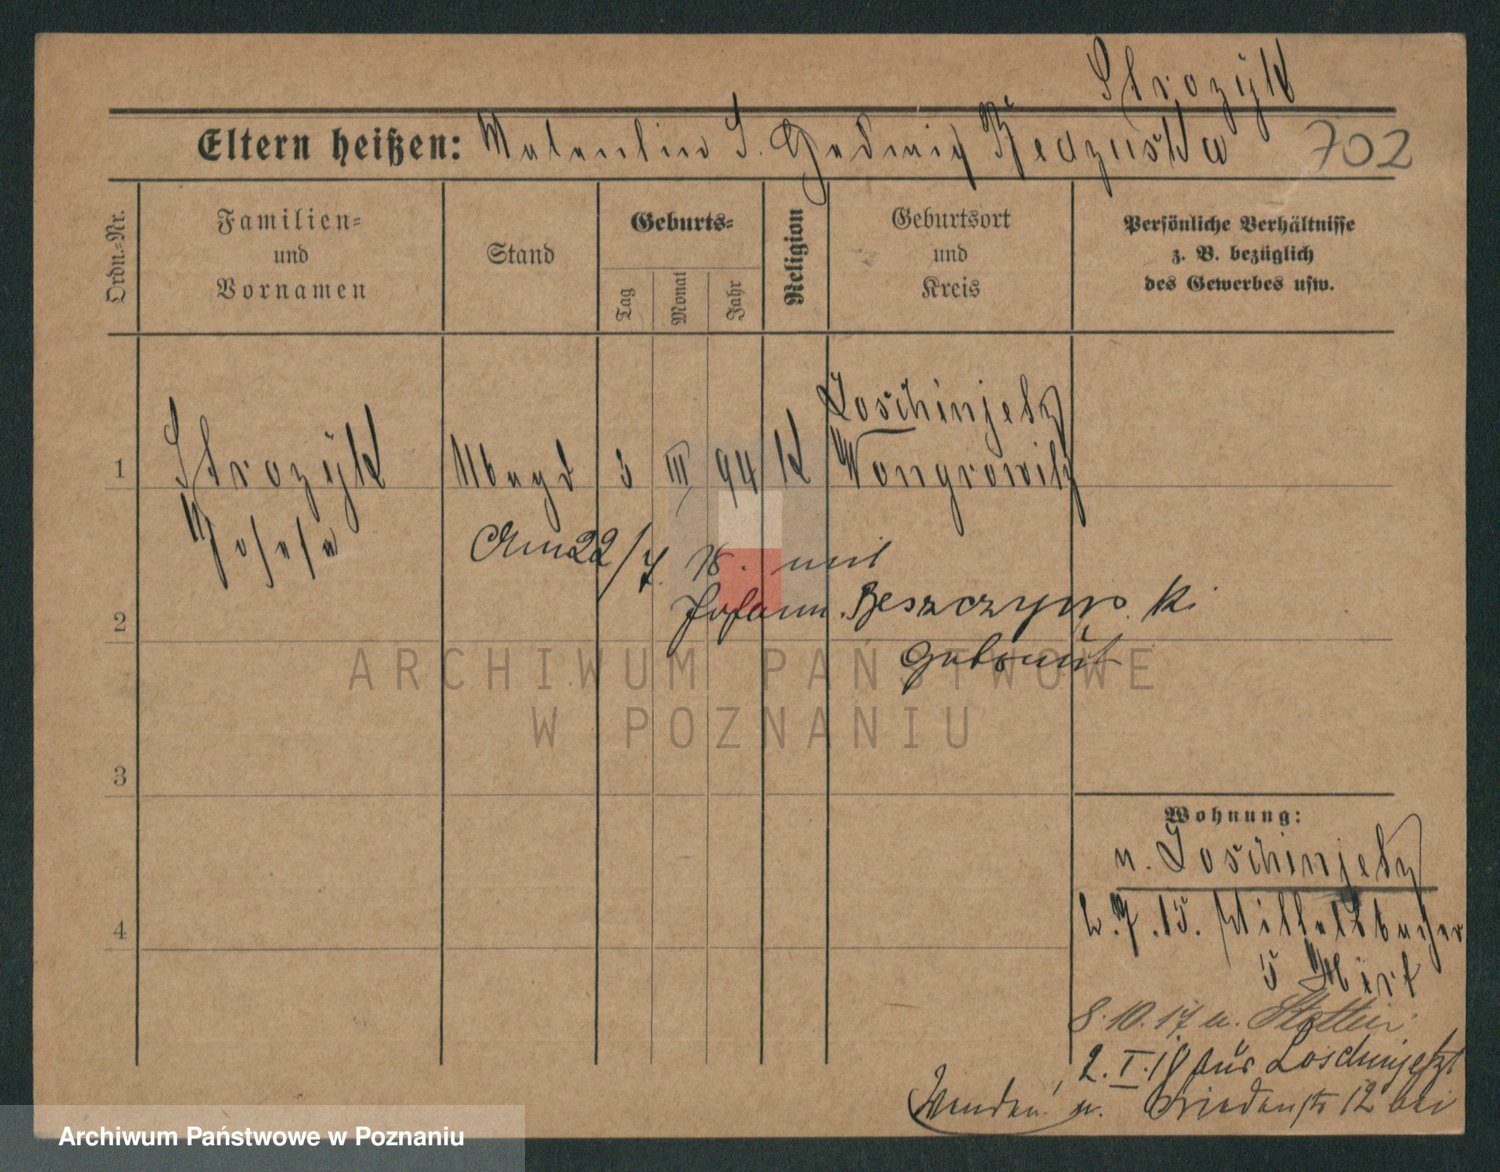 Strozyk
Eltern heißen: Valentin S. Hedwig Reczuska 702
Ordn.-Nr.
Familien-
und
Vornamen
Stand
Geburts-
Tag
Monat
Jahr
Religion
Geburtsort
und
Kreis
Persönliche Verhältnisse
z. B. bezüglich
des Gewerbes usw.
1
Strozyk
Josefa
Magd 3 III 94 K
Loschinjetz
Wongrowitz
Am 22/7. 18. mit
2
Johann
ARCHIWUM PAŃSTWOWE
W POZNANIU
3
4
Wohnung:
n. Loschinjetz
2.7.15.
5
8.10.17 n. Stettin
2.I.18 aus Loschinjetzt
Wenden! n. Friedenstr 12 bei
Archiwum Państwowe w Poznaniu